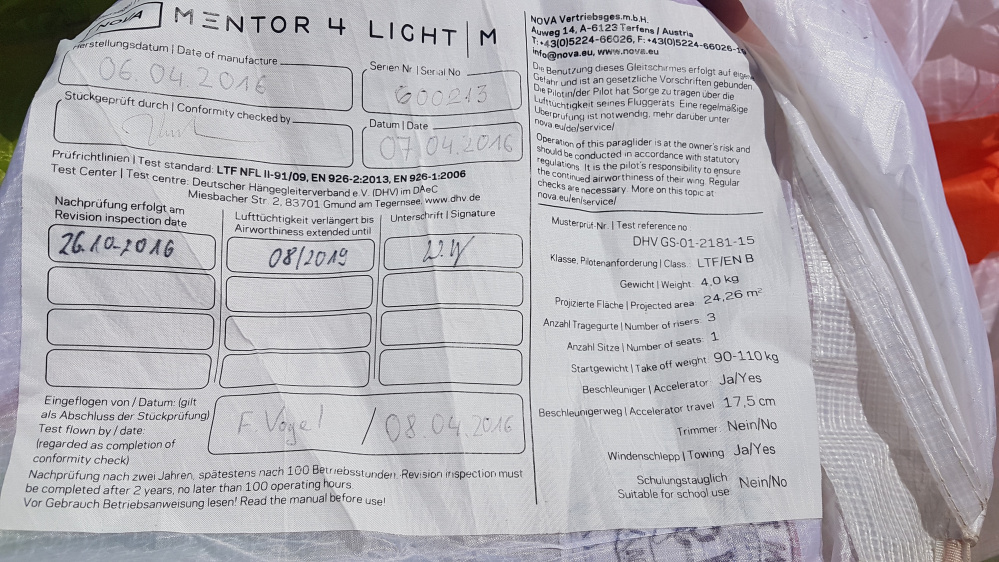 NOVA
MENTOR 4 LIGHT | M
Herstellungsdatum | Date of manufacture
06.04.2016
Serien Nr | Serial No
600213
Stückgeprüft durch | Conformity checked by
Datum | Date
07 04.2016
Prüfrichtlinien | Test standard: LTF NFL II-91/09, EN 926-2:2013, EN 926-1:2006
Test Center | Test centre: Deutscher Hängegleiterverband e.V. (DHV) im DAeC
Miesbacher Str. 2, 83701 Gmund am Tegernsee, www.dhv.de
Nachprüfung erfolgt am
Revision inspection date
Lufttüchtigkeit verlängert bis
Airworthiness extended until
Unterschrift | Signature
26.10-2016
08/2019
Eingeflogen von / Datum: (gilt
als Abschluss der Stückprüfung)
Test flown by / date:
(regarded as completion of
conformity check)
F. Vogel / 08.04.2016
Nachprüfung nach zwei Jahren, spätestens nach 100 Betriebsstunden. Revision inspection must
be completed after 2 years, no later than 100 operating hours.
Vor Gebrauch Betriebsanweisung lesen! Read the manual before use!
NOVA Vertriebsges.m.b.H.
Auweg 14, A-6123 Terfens / Austria
T: +43(0)5224-66026, F: +43(0)5224-66026-
info@nova.eu, www.nova.eu
Die Benutzung dieses Gleitschirmes erfolgt auf eigene
Gefahr und ist an gesetzliche Vorschriften gebunden.
Die Pilotin/der Pilot hat Sorge zu tragen über die
Lufttüchtigkeit seines Fluggeräts. Eine regelmäßige
Überprüfung ist notwendig, mehr darüber unter
nova.eu/de/service/
Operation of this paraglider is at the owner's risk and
should be conducted in accordance with statutory
regulations. It is the pilot's responsibility to ensure
the continued airworthiness of their wing. Regular
checks are necessary. More on this topic at
nova.eu/en/service/
Musterprüf-Nr. | Test reference no
DHV GS-01-2181-15
Klasse, Pilotenanforderung | Class: LTF/EN B
Gewicht | Weight: 4,0 kg
Projizierte Fläche | Projected area: 24,26 m²
Anzahl Tragegurte | Number of risers: 3
Anzahl Sitze | Number of seats: 1
Startgewicht | Take off weight: 90-110 kg
Beschleuniger | Accelerator: Ja/Yes
Beschleunigerweg | Accelerator travel: 17,5 cm
Trimmer: Nein/No
Windenschlepp | Towing: Ja/Yes
Schulungstauglich
Suitable for school use: Nein/No